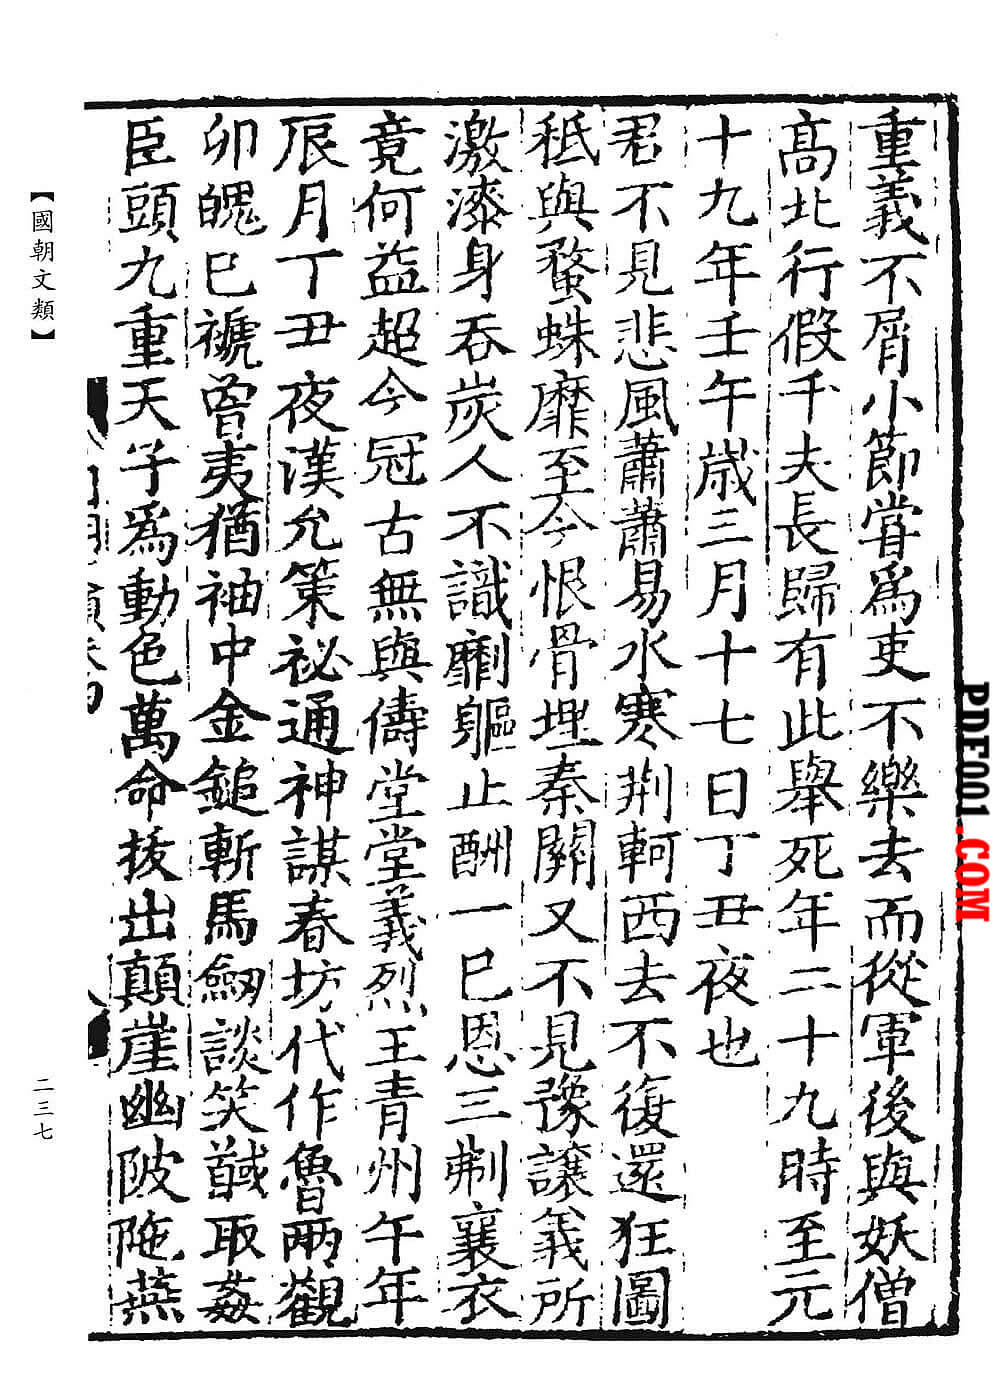 重義不屑小節甞爲吏不樂去而從軍後與妖僧
髙北行假千夫長歸有此舉死年二十九時至元
十九年壬午歳三月十七日丁丑夜也
君不見悲風蕭蕭易水寒荆軻西去不復還狂圖
秪與蝥蛛靡至今恨骨埋秦關又不見豫讓義所
激漆身吞炭人不識劘軀止酬一巳恩三刜襄衣
竟何益超今冠古無與儔堂堂義烈王青州午年
辰月丁丑夜漢允策祕通神謀春坊代作魯兩觀
卯魄巳褫曾夷猶袖中金鎚斬馬劒談笑馘取姦
臣頭九重天子爲動色萬命拔出顛崖幽陂陁燕
【國朝文類】
二三七
PDF001.COM